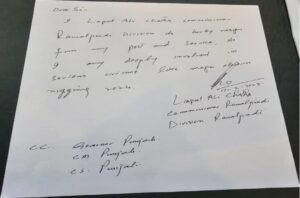 Dear Sir
I Liaqat Ali Chatha commissioner
Rawalpindi Division do hereby resign
from my post and service. As
I am deeply involved in
serious crime like mega election
rigging 2024.
Liaqat Ali Chatha
Commissioner Rawalpindi
Division Rawalpindi
CC. Governor Punjab
CM Punjab
CS. Punjab